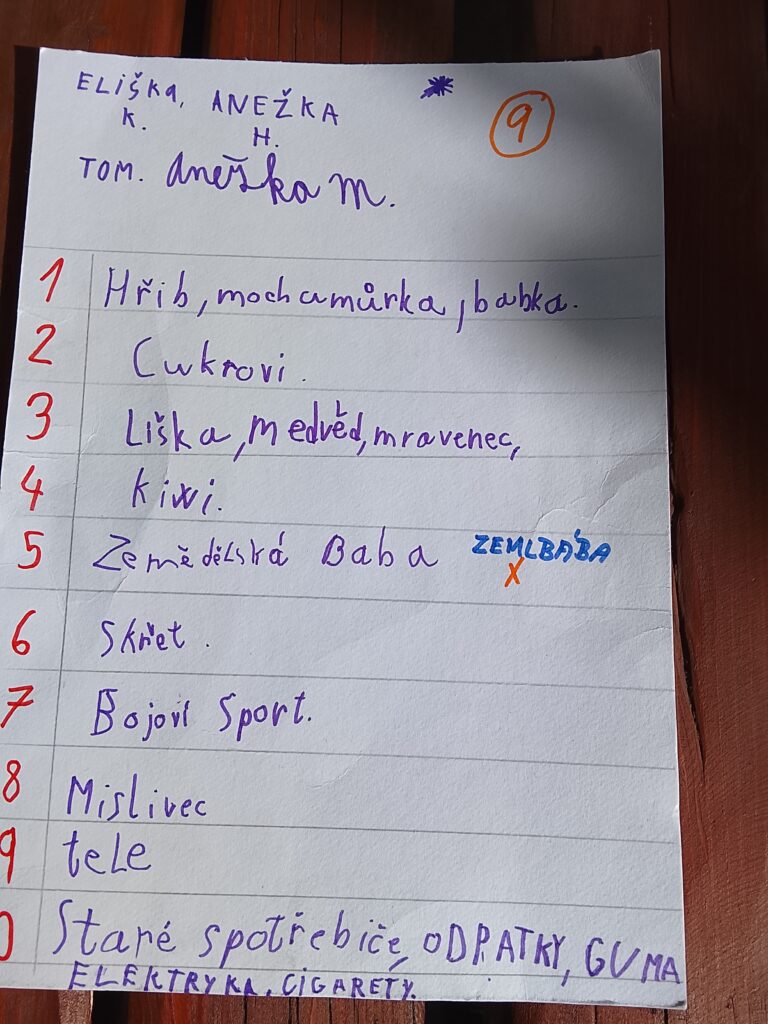 ELIŠKA, ANEŽKA 9
K. H.
TOM. Aneška M.
1 Hřib, mochamůrka, babka.
2 Cukrovi.
3 Liška, Medvěd, mravenec,
4 kiwi.
5 Zemědělská Baba ZEMLBÁBA
X
6 Skřet.
7 Bojovi Sport.
8 Mislivec
9 tele
0 Staré spotřebiče, ODPATKY, GUMA
ELEKTRYKA, CIGARETY.